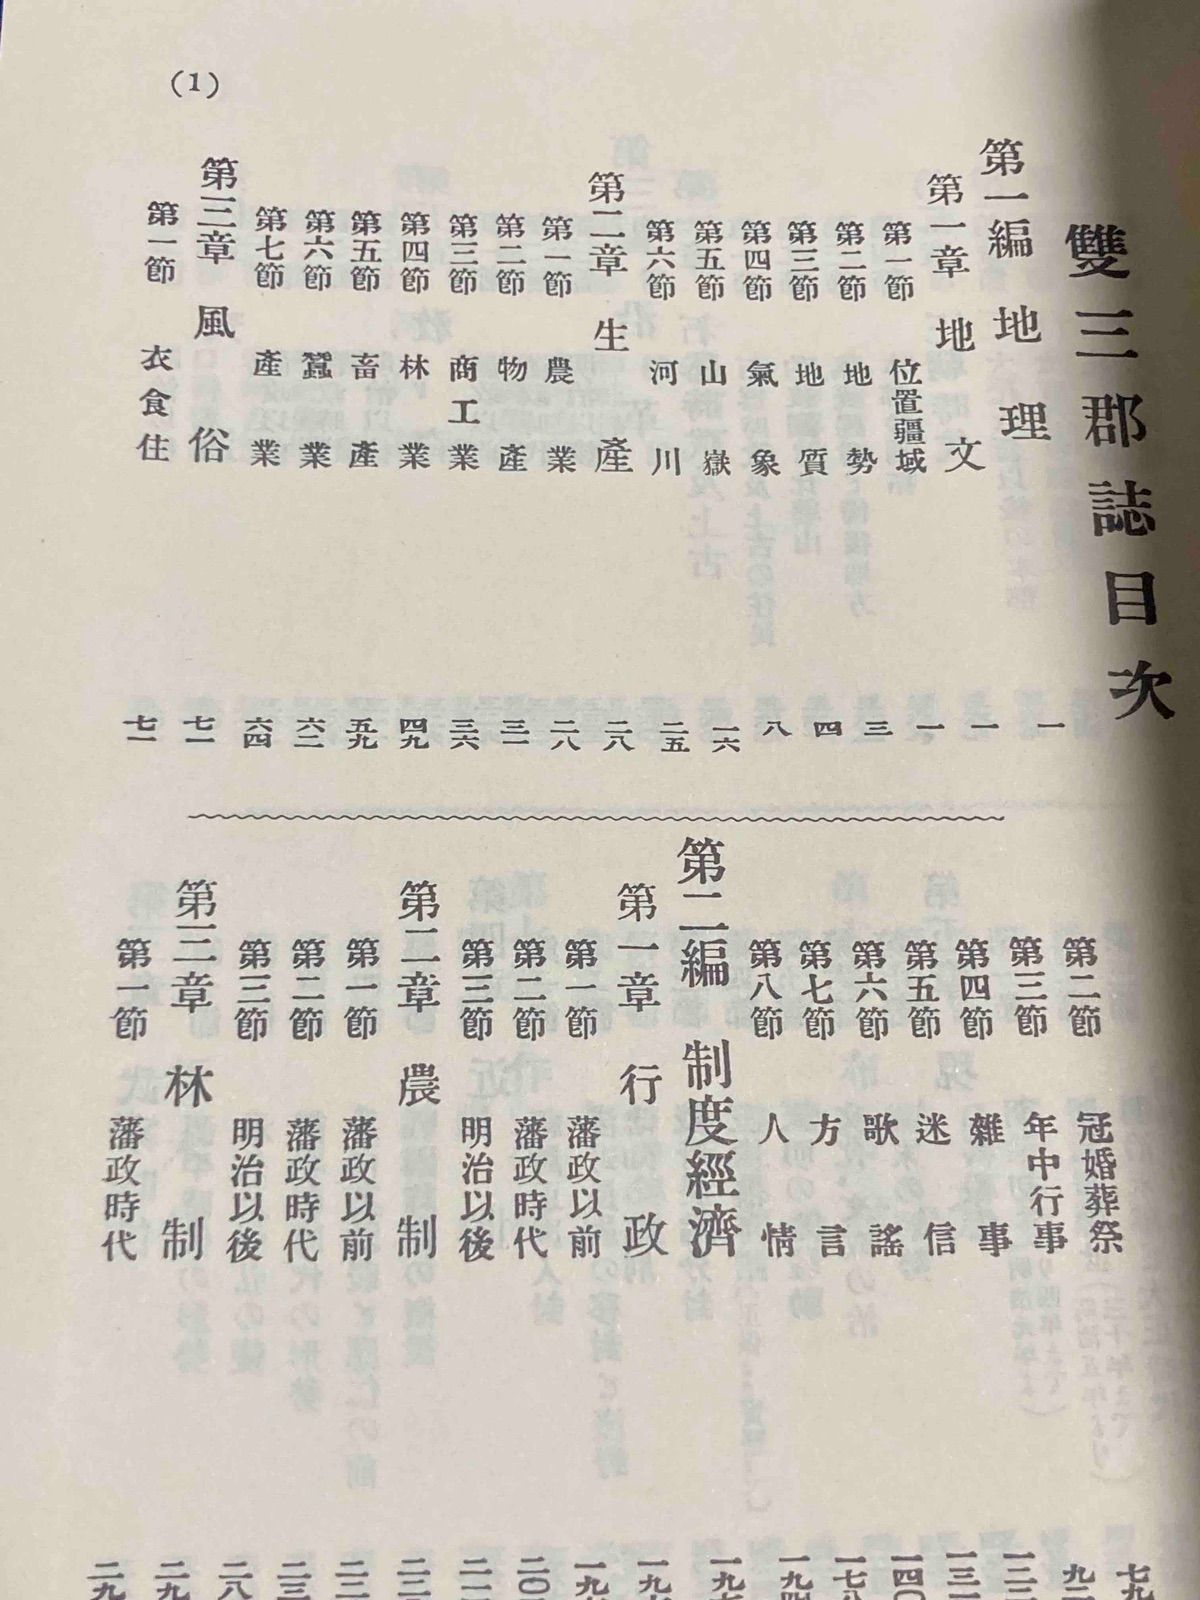 (1)
雙三郡誌目次
第一編 地理 一
第一章 地文 一
第一節 位置疆域 一
第二節 地勢 三
第三節 地質 四
第四節 氣象 八
第五節 山嶽 一六
第六節 河川 二五
第二章 生產 二八
第一節 農業 二八
第二節 物產 三一
第三節 商工業 三六
第四節 林業 四九
第五節 畜產 五九
第六節 蠶業 六二
第七節 產業 六四
第三章 風俗 七一
第一節 衣食住 七一
第二節 冠婚葬祭 七九
第三節 年中行事 九二
第四節 雜事
第五節 迷信
第六節 歌謠 一四〇
第七節 方言 一七八
第八節 人情 一九四
第二編 制度經濟
第一章 行政
第一節 藩政以前
第二節 藩政時代
第三節 明治以後
第二章 農制
第一節 藩政以前
第二節 藩政時代
第三節 明治以後
第三章 林制
第一節 藩政時代